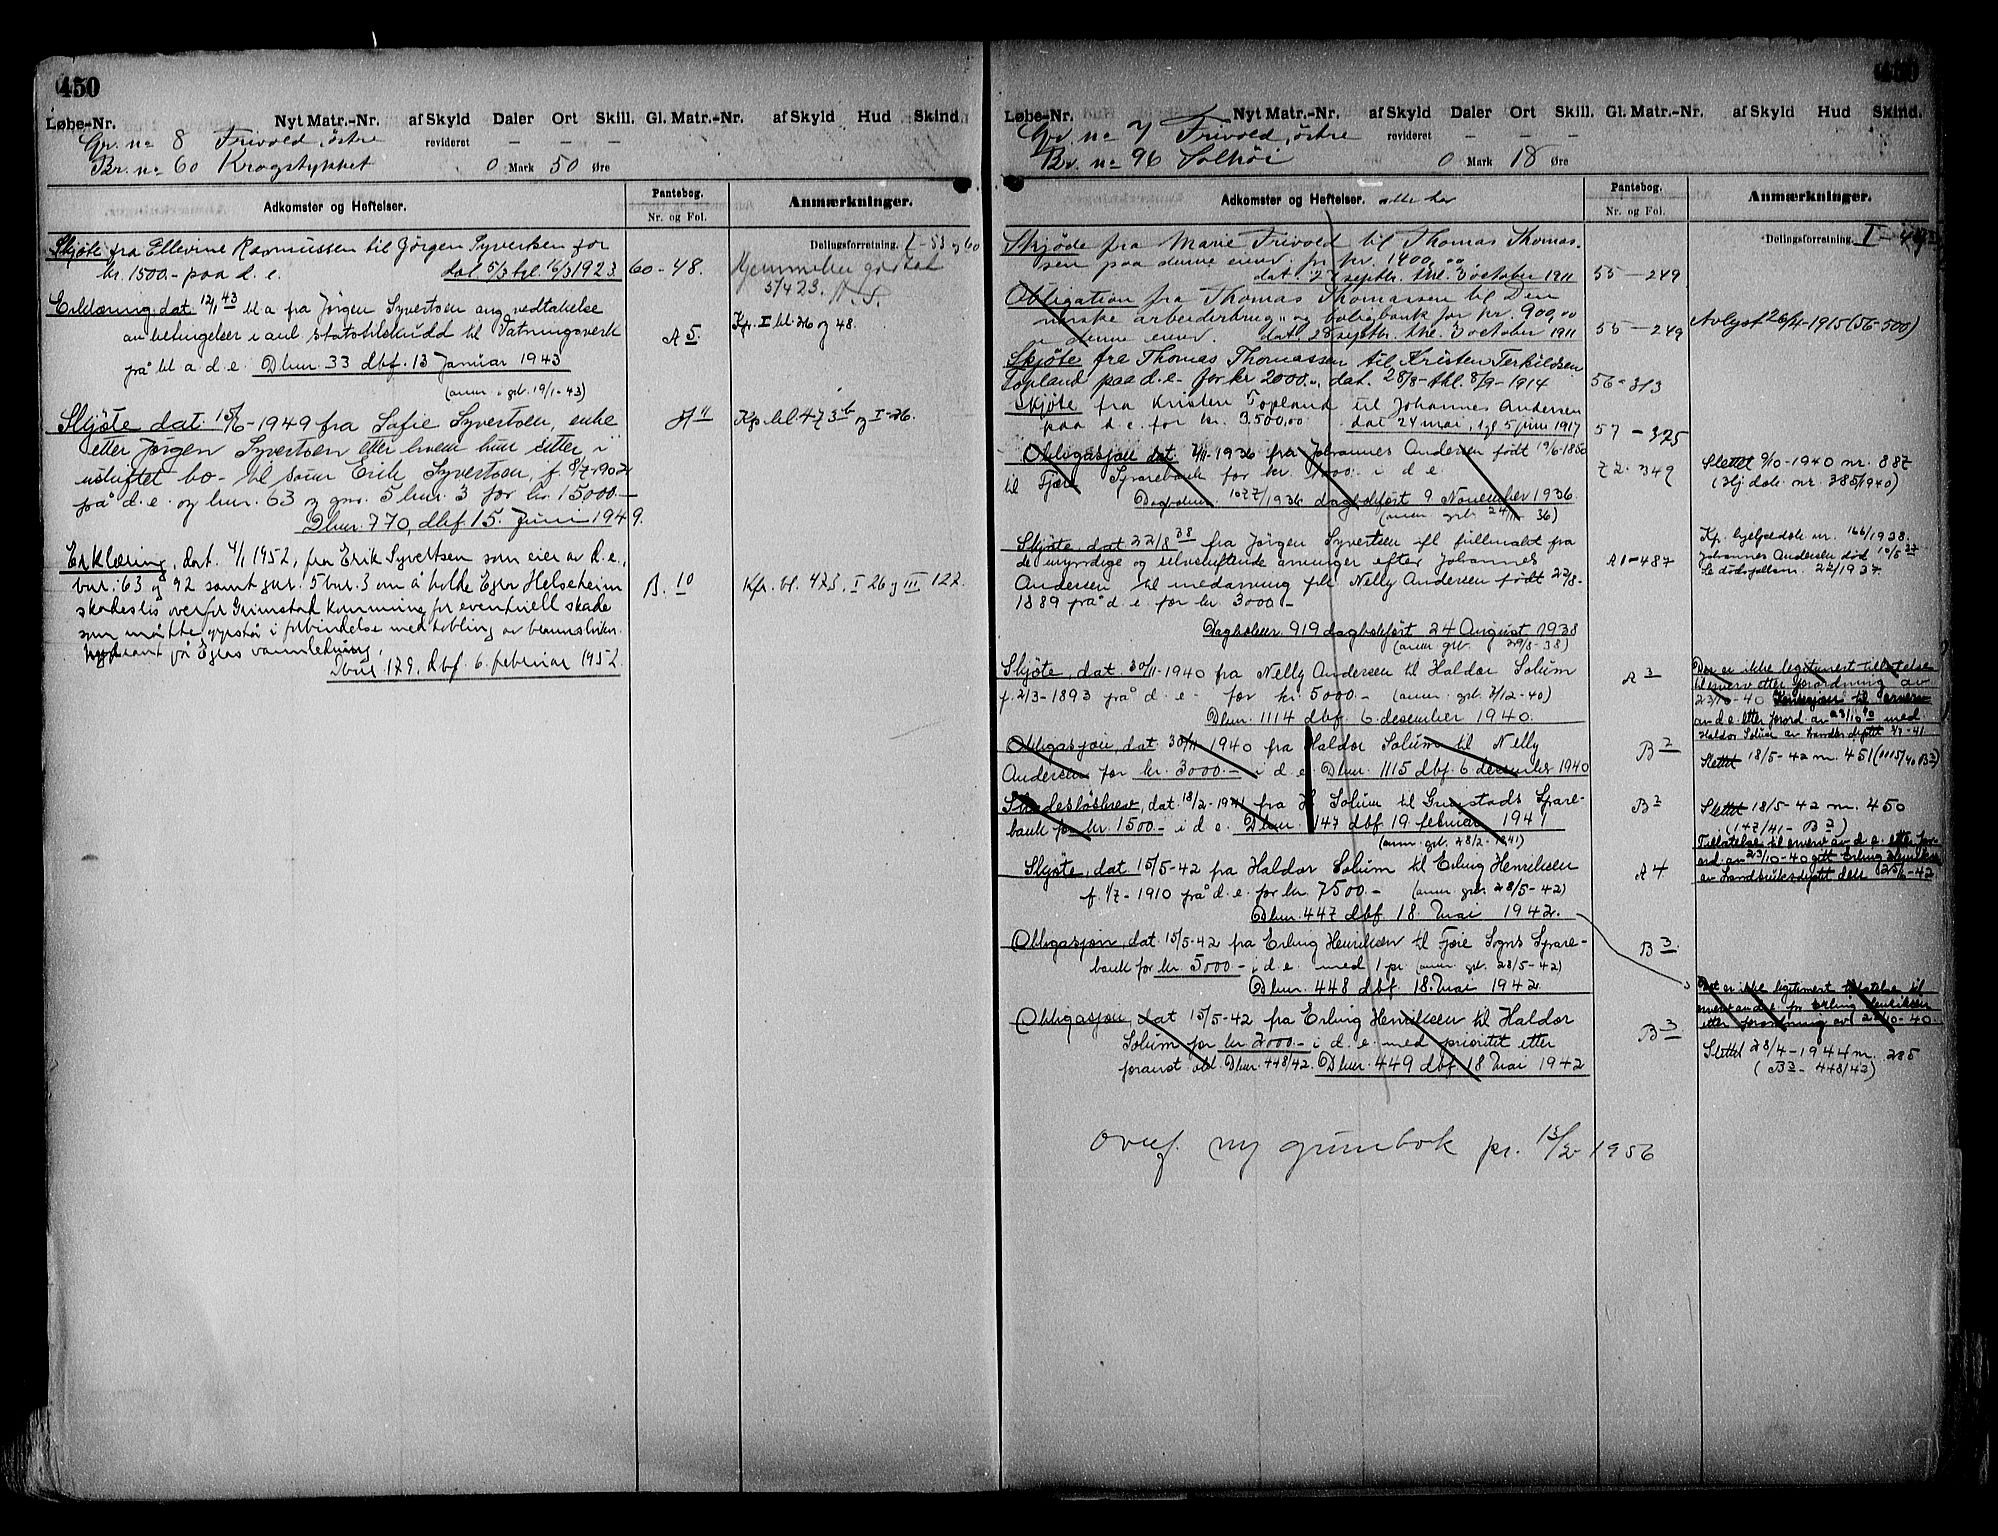 450
Løbe-Nr. Nyt Matr.-Nr. af Skyld Daler Ort Skill. Gl. Matr.-Nr. af Skyld Hud Skind.
Gr. no 8 Frivold, östre revideret — — —
Br. no 60 Krogstykket 0 Mark 50 Øre
Adkomster og Heftelser. Pantebog. Nr. og Fol. Anmærkninger.
Delingsforretning. I - 53 og 60
Skjöte fra Ellevine Rasmussen til Jörgen Syvertsen for
kr. 1500.- paa d. e. dat 5/3 tgl. 16/3 1923 60-48. Hjemmelen godtat
5/4 23.
Erklæring, dat 12/1 43 bl a fra Jörgen Syvertsen ang vedtakelse
av betingelser i anl statstilskudd til Vatningsverk A 5. Kp. I bl. 26 og 48.
på bl a d. e. Dbnr. 33 dbf. 13 Januar 1943
(anm. i grb. 19/1-43)
Skjöte dat. 15/6-1949 fra Sofie Syvertsen, enke A 11 Kp bl. 473 b og I-26.
etter Jörgen Syvertsen etter hvem hun sitter i
uskiftet bo - til sönn Erik Syvertsen, f. 8/7-1902
på d. e. og bnr. 63 og gnr. 5 bnr. 3 for kr. 15000.-
Dbnr. 770, dbf. 15. Juni 1949.
Erklæring, dat. 4/1 1952, fra Erik Syvertsen som eier av d. e.,
bnr. 63 og 92 samt gnr. 5 bnr. 3 om å holde Egra Helseheim B. 10 Kfr. bl. 473, I 26 og III 122.
skadeslös overfor Grimstad kommune for eventuell skade
som måtte oppstå i forbindelse med kobling av
hydrant på Egras vannledning.
Dbnr. 179. dbf. 6. februar 1952.
Løbe-Nr. Nyt Matr.-Nr. af Skyld Daler Ort Skill. Gl. Matr.-Nr. af Skyld Hud Skind.
Gr. no 7 Frivold, östre revideret — — —
Br. no 96 Solhöi 0 Mark 18 Øre
Adkomster og Heftelser. Pantebog. Nr. og Fol. Anmærkninger.
Delingsforretning. I -
Skjöde fra Marie Frivold til Thomas Thomas-
sen paa denne eiend. for kr. 1400,00
dat. 27 septbr. thl. 3 october 1911 55-249
Obligation fra Thomas Thomassen til Den
norske arbeiderbrug- og boligbank for kr. 900,00
i denne eiend. dat. 28 septbr. thl. 3 october 1911 55-249 Avlyst 26/4-1915 (56-500)
Skjöte fra Thomas Thomassen til Kristen Terkildsen
Topland paa d. e. for kr 2000.-, dat. 28/8- thl. 8/9-1914 56-313
Skjöte fra Kristen Topland til Johannes Andersen
paa d. e. for kr. 3.500,00 dat 24 mai, tgl 5 juni 1917 57-325
Obligasjon dat 7/11-1936 fra Johannes Andersen födt 19/6-1850
til Fjære Sparebank for kr. 1000.- i d. e. 72-349 Slettet 9/10-1940 nr. 887
Dagboknr. 1077/1936 dagbokfört 9 November 1936 (Hj. dok. nr. 385/1940)
(anm grb. 24/11 36)
Skjöte, dat 22/8 38 fra Jörgen Syvertsen ifl fullmakt fra Kp. hjelpedok nr. 166/1938.
det umyndige og selvskiftende arvinger efter Johannes A 1-487 Johannes Andersen död 10/5 37
Andersen til medarving frk Nelly Andersen födt 22/8- Se dödsfallsnr. 22/1937.
1889 på d. e. for kr 3000.-
Dagboknr. 919 dagbokfört 24 August 1938
(anm grb. 29/8-38)
Skjöte, dat. 30/11-1940 fra Nelly Andersen til Haldor Solum A 3 Det er ikke legitimert tillatelse
f. 2/3-1893 på d. e. for kr. 5000.- (anm. grb. 7/12-40) til erverv etter forordning av
Dbnr. 1114 dbf. 6. desember 1940. 23/10-40 Konsesjon til erverv
av d. e. etter forord. av 23/10 40 med.
Haldor Solum av Landbr.deptet 4/7-41
Obligasjon, dat. 30/11-1940 fra Haldor Solum til Nelly B 2
Andersen for kr. 3000.- i d. e. Dbnr. 1115 dbf. 6 desember 1940 Slettet 18/5-42 nr. 451 (1115/40 B 2)
Skadeslösbrev, dat. 18/2-1941 fra H. Solum til Grimstads Spare- B 2 Slettet 18/5-42 nr. 450
bank for kr. 1500.- i d. e. Dbnr. 147 dbf 19 februar 1941 (147/41 - B 2)
(anm. grb. 28/2-1941)
Tillatelse til erverv av d. e. etter for-
ord. av 23/10-40 gitt Erling Henriksen
av Landbruksdeptet den 25/6-42
Skjöte, dat 15/5-42 fra Haldor Solum til Erling Henriksen A 4
f. 1/7-1910 på d. e. for kr 7500.- (anm grb. 28/5-42)
Dbnr. 447 dbf 18. Mai 1942.
Obligasjon, dat 15/5-42 fra Erling Henriksen til Fjære Sogns Spare- B 3
bank for kr. 5000.- i d. e. med 1 pr. (anm. grb. 28/5-42)
Dbnr. 448 dbf 18. Mai 1942
Det er ikke legitimert tillatelse til
erverv av d. e. for Erling Henriksen
etter forordning av 23/10-40.
Obligasjon dat 15/5-42 fra Erling Henriksen til Haldor B 3
Solum for kr 2000.- i d. e. med prioritet etter Slettet 28/4-1944 nr. 285
foranst. obl. Dbnr. 448/42. Dbnr. 449 dbf 18 Mai 1942 (B 3 - 448/42)
Overf. ny grunnbok pr. 15/2-1956